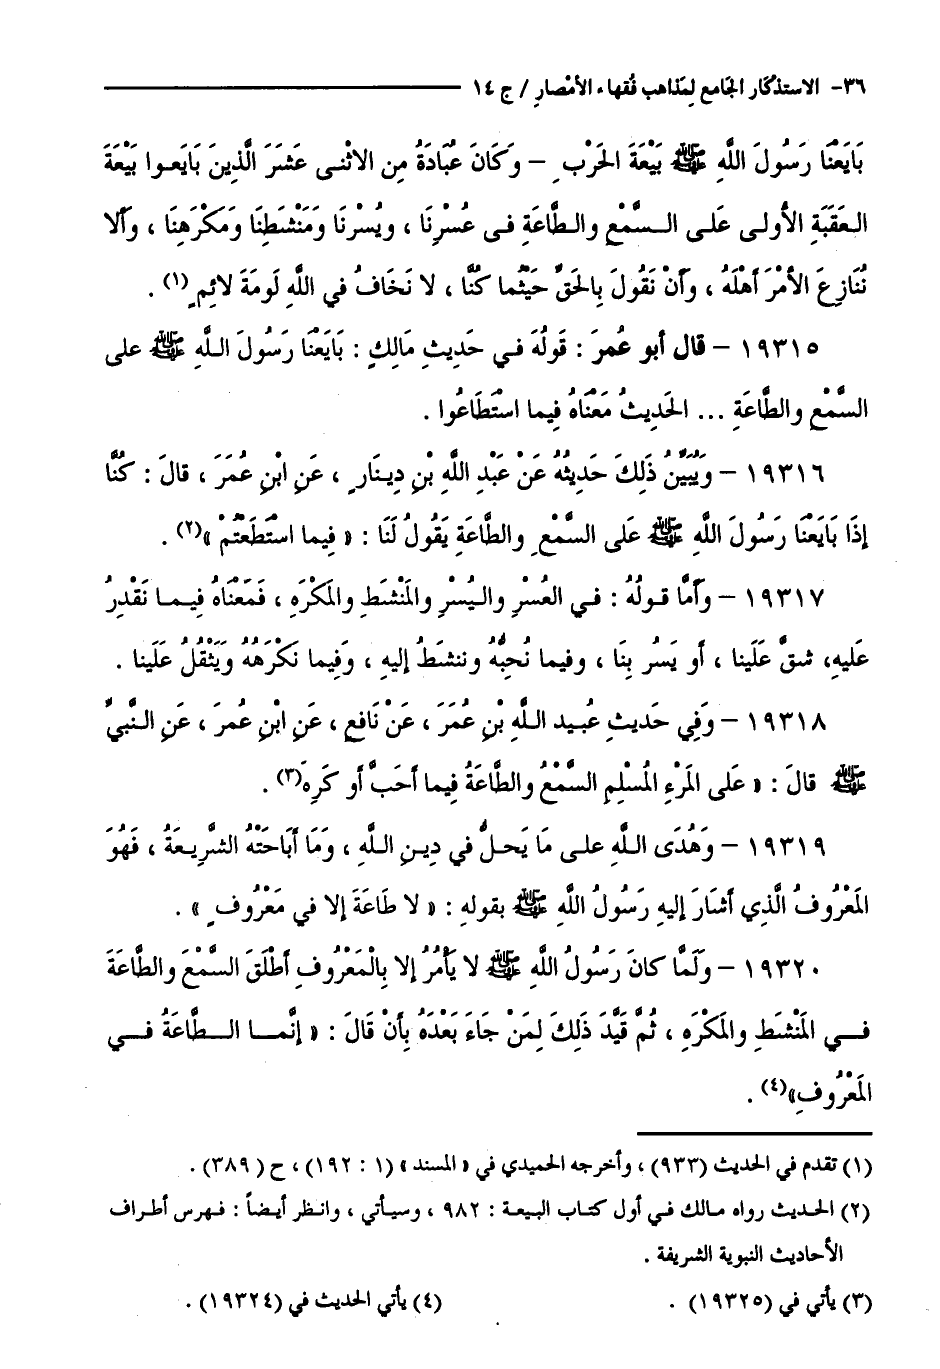 ٣٦- الاستذكار الجامع لِمَذاهب فُقهاء الأمْصارِ / ج ١٤
بَايَعْنَا رَسُولَ اللَّهِ ﷺ بَيْعَةَ الحَرْبِ – وَكَانَ عُبَادَةُ مِن الاثْنى عَشَرَ الَّذِينَ بَايَعـوا بَيْعَةَ
العَقَبَةِ الأولـى عَلـى السـمْعِ والطَّاعَةِ فى عُسْرِنَا ، ويُسْرِنَا ومَنْشَطِنَا ومَكْرَهِنَا ، وَألا
نُنَازِعَ الأمْرَ أهْلَهُ ، وَأنْ نَقُولَ بِالحَقِّ حَيْثُما كُنَّا ، لا نَخَافُ في اللَّهِ لَومَةَ لائِمٍ(١) .
١٩٣١٥ – قال أبو عُمرَ : قَولُهَ فـي حَدِيثِ مَالِكٍ : بَايَعْنَا رَسُولَ اللَّهِ ﷺ على
السَّمْعِ والطَّاعَةِ ... الحَدِيثُ مَعْنَاهُ فِيما اسْتَطَاعُوا .
١٩٣١٦ – وَيُبَيِّنُ ذَلِكَ حَدِيثُهُ عَنْ عَبْدِ اللَّهِ بْنِ دِينَارٍ ، عَنِ ابْنِ عُمَرَ ، قالَ : كُنَّا
إذَا بَايَعْنَا رَسُولَ اللَّهِ ﷺ عَلى السَّمْعِ والطَّاعَةِ يَقُولُ لَنَا : « فِيما اسْتَطَعْتُمْ »(٢) .
١٩٣١٧ – وَأمَّا قـولُهُ : فـي العُسْرِ واليُسْرِ والمَنْشَطِ والمَكْرَهِ ، فَمَعْنَاهُ فِيمـا نَقْدِرُ
عَليهِ، شقَّ عَلَينا ، أو يَسُر بِنَا ، وفيما نُحِبُّهُ وننشَطُ إليهِ ، وَفِيما نَكْرَهُهُ وَيَثْقُلُ عَلَينا .
١٩٣١٨ – وَفِي حَديثِ عُبـيد اللَّهِ بْنِ عُمَرَ ، عَنْ نَافِعٍ ، عَنِ ابْنِ عُمرَ ، عَنِ النَّبيِّ
ﷺ قالَ : « عَلى المَرْءِ المُسْلِمِ السَّمْعُ والطَّاعَةُ فِيما أحَبَّ أو كَرِهَ(٣) .
١٩٣١٩ – وَهُدَى اللَّهِ علـى مَا يَحلُّ في دِينِ اللَّهِ ، وَمَا أبَاحَتْهُ الشَّرِيعَةُ ، فَهُوَ
المَعْرُوفُ الَّذِي أشَارَ إليهِ رَسُولُ اللَّهِ ﷺ بقولهِ : « لا طَاعَةَ إلا في مَعْرُوفٍ » .
١٩٣٢٠ – وَلَمَّا كانَ رَسُولُ اللَّهِ ﷺ لا يَأمُرُ إلا بِالْمَعْرُوفِ أطْلَقَ السَّمْعَ والطَّاعَةَ
فــي المَنْشَطِ والمَكْرَهِ ، ثُمَّ قَيَّدَ ذَلِكَ لِمَنْ جَاءَ بَعْدَهُ بِأنْ قَالَ : « إنَّمــا الطَّاعَةُ فــي
المَعْرُوفِ»(٤) .
(١) تقدم في الحديث (٩٣٣) ، وأخرجه الحميدي في « المسند » (١ : ١٩٢) ، ح (٣٨٩) .
(٢) الحديث رواه مالك في أول كتاب البيعة : ٩٨٢ ، وسيأتي ، وانظر أيضاً : فهرس أطراف
الأحاديث النبوية الشريفة .
(٣) يأتي في (١٩٣٢٥) . (٤) يأتي الحديث في (١٩٣٢٤) .